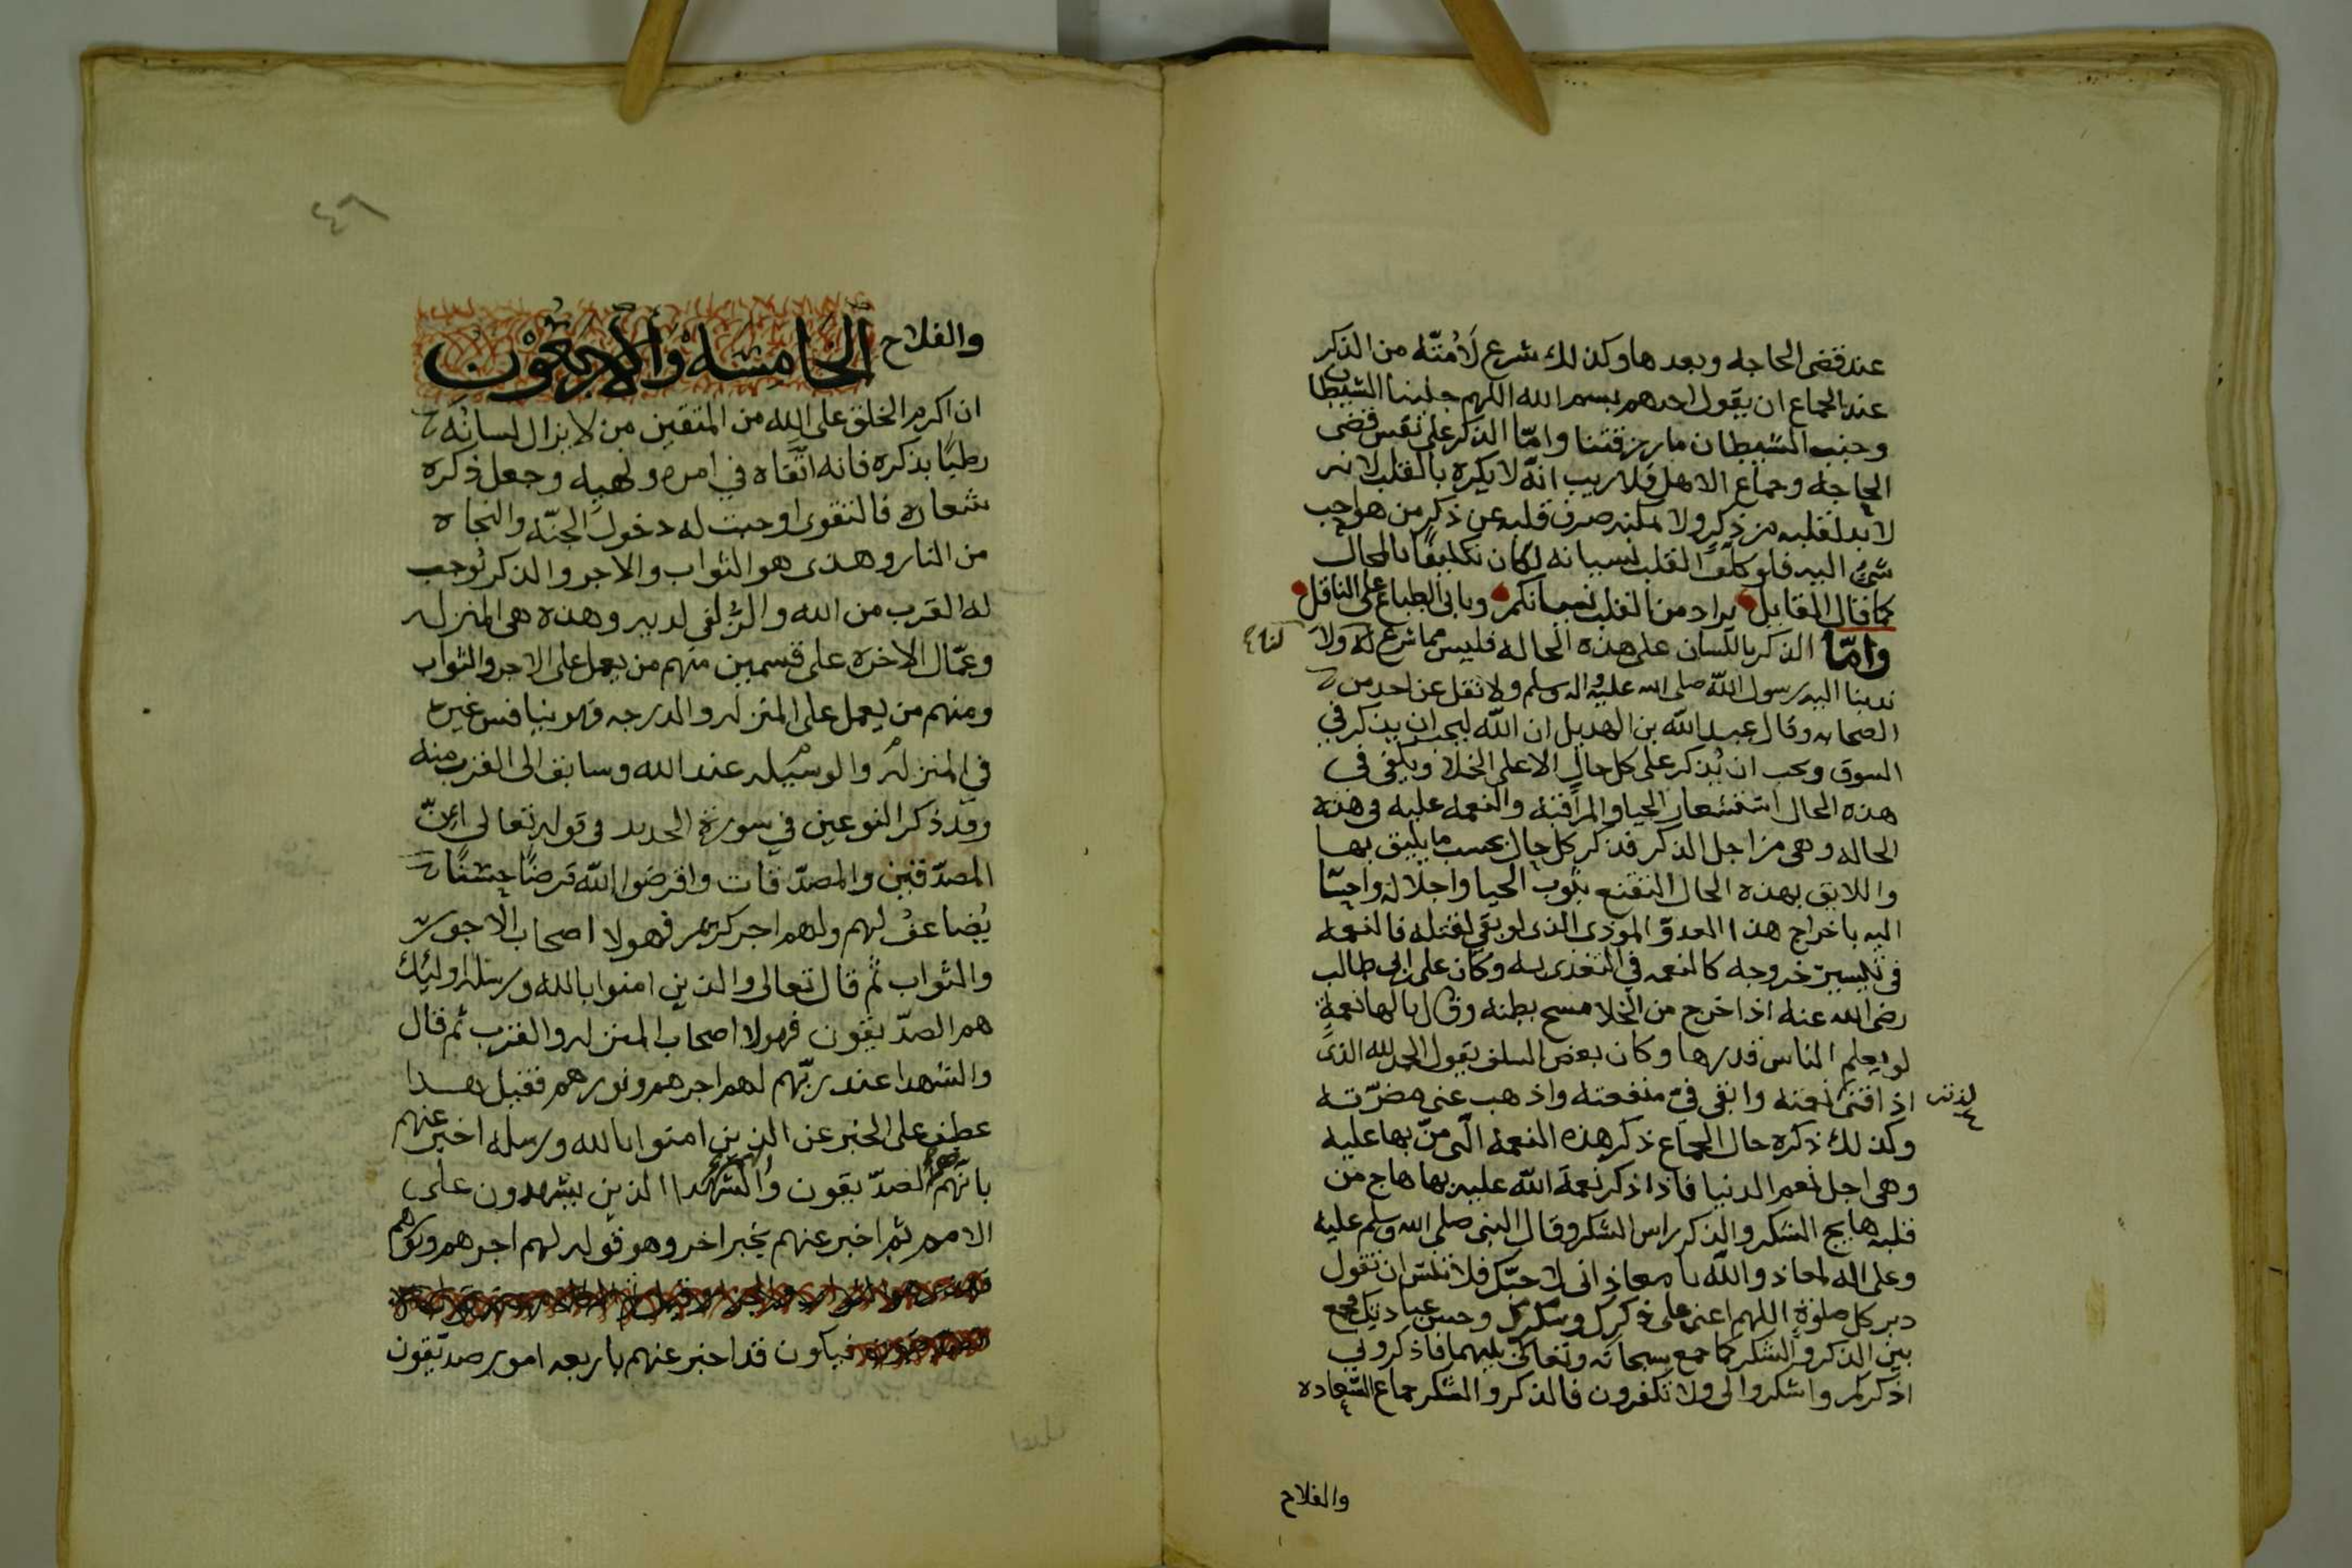 عند قضى الحاجه وبعدها وكذلك شرع لأمته من الذكر
عند الجماع ان يقول احدهم بسم الله اللهم جنبنا الشيطان
وجنب الشيطان ما رزقتنا وامّا الذكر على نفس قضى
الحاجه وجماع الاهل فلا ريب انه لا يكره بالقلب لانه
لا بد لقلبه من ذكر ولا يمكنه صرف قلبه عن ذكر من هو احب
شئ اليه فلو كلف القلب نسيانه لكان تكليفا بالمحال
كما قال القايل يراد من القلب نسيانكم وتابى الطباع على الناقل
وامّا الذكر باللسان على هذه الحاله فليس مما شرع لنا ولا
ندبنا اليه رسول الله صلى الله عليه واله وسلم ولا نقل عن احد من
الصحابه وقال عبد الله بن الهديل ان الله ليحب ان يذكر في
السوق ويحب ان يُذكر على كل حال الا على الخلا ويكفي في
هذه الحال استشعار الحيا والمراقبة والنعمه عليه في هذه
الحاله وهي من اجل الذكر فذكر كل حال بحسب ما يليق بها
واللايق بهذه الحال التقنع بثوب الحيا واجلاله
اليه باخراج هذا العدوّ الموذي الذي لو بقي لقتله فالنعمه
في تيسير خروجه كالنعمه في التغذى به وكان علي بن ابي طالب
رضي الله عنه اذا خرج من الخلا مسح بطنه وقال يا لها نعمةٍ
لو يعلم الناس قدرها وكان بعض السلف يقول الحمد لله الذي
اذاقني لذته وابقى فيّ منفعته واذهب عني مضرّته
وكذلك ذكره حال الجماع ذكر هذه النعمة الّتي منّ بها عليه
وهي اجل نعم الدنيا فاذا ذكر نعمة الله عليه بها هاج من
قلبه هايج الشكر والذكر راس الشكر وقال النبي صلى الله وسلم عليه
وعلى اله لمعاذ والله يا معاذ اني لاحبّك فلا تنس ان تقول
دبر كل صلوة اللهم اعني على ذكرك وشكرك وحسن عبادتك فجمع
بين الذكر والشكر كما جمع سبحانه وتعالى بينهما فاذكروني
اذكركم واشكروا لي ولا تكفرون فالذكر والشكر جماع السّعاده
والفلاح
٤٦
والفلاح الخامسة والأربعون
ان اكرم الخلق على الله من المتقين من لا يزال لسانُه
رطبًا بذكره فانه اتّقاه في امره ونهيه وجعل ذكره
شعاره فالتقوى اوجبت له دخول الجنّه والنجاه
من النار وهذى هو الثواب والاجر والذكر تُوجب
له القرب من الله والزُلفى لديه وهذه هي المنزله
وعمّال الاخره على قسمين منهم من يعمل على الاجر والثواب
ومنهم من يعمل على المنزله والدرجه فهو ينافس غيره
في المنزله والوسيله عند الله وسابق الى القرب منه
وقد ذكر النوعين في سورة الحديد في قوله تعالى انّ
المصدّقين والمصدّقات واقرضوا الله قرضًا حسنًا
يُضاعفُ لهم ولهم اجر كريم فهولا اصحاب الاجور
والثواب ثم قال تعالى والذين امنوا بالله ورسله اوليك
هم الصدّيقون فهولا اصحاب المنزله والقرب ثم قال
والشهدا عند ربّهم لهم اجرهم ونورهم فقيل هذا
عطف على الخبر عن الذين امنوا بالله ورسله اخبر عنهم
بانّهم هم الصدّيقون والشهدا الذين يشهدون على
الامم ثم اخبر عنهم بخبر اخر وهو قوله لهم اجرهم ونورهم
فيكون قد اخبر عنهم باربعه امور صدّيقون